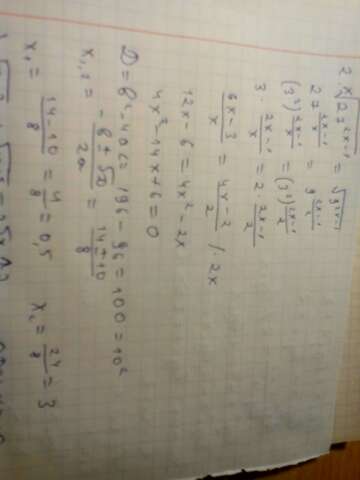 2. ˣ√27²ˣ⁻¹ = √9²ˣ⁻¹
27^((2x-1)/x) = 9^((2x-1)/2)
(3³)^((2x-1)/x) = (3²)^((2x-1)/2)
3 · (2x-1)/x = 2 · (2x-1)/2
(6x-3)/x = (4x-2)/2 / · 2x
12x - 6 = 4x² - 2x
4x² - 14x + 6 = 0
D = b² - 4ac = 196 - 96 = 100 = 10²
x₁,₂ = (-b ± √D)/2a = (14 ± 10)/8
x₁ = (14-10)/8 = 4/8 = 0,5 x₂ = 24/8 = 3